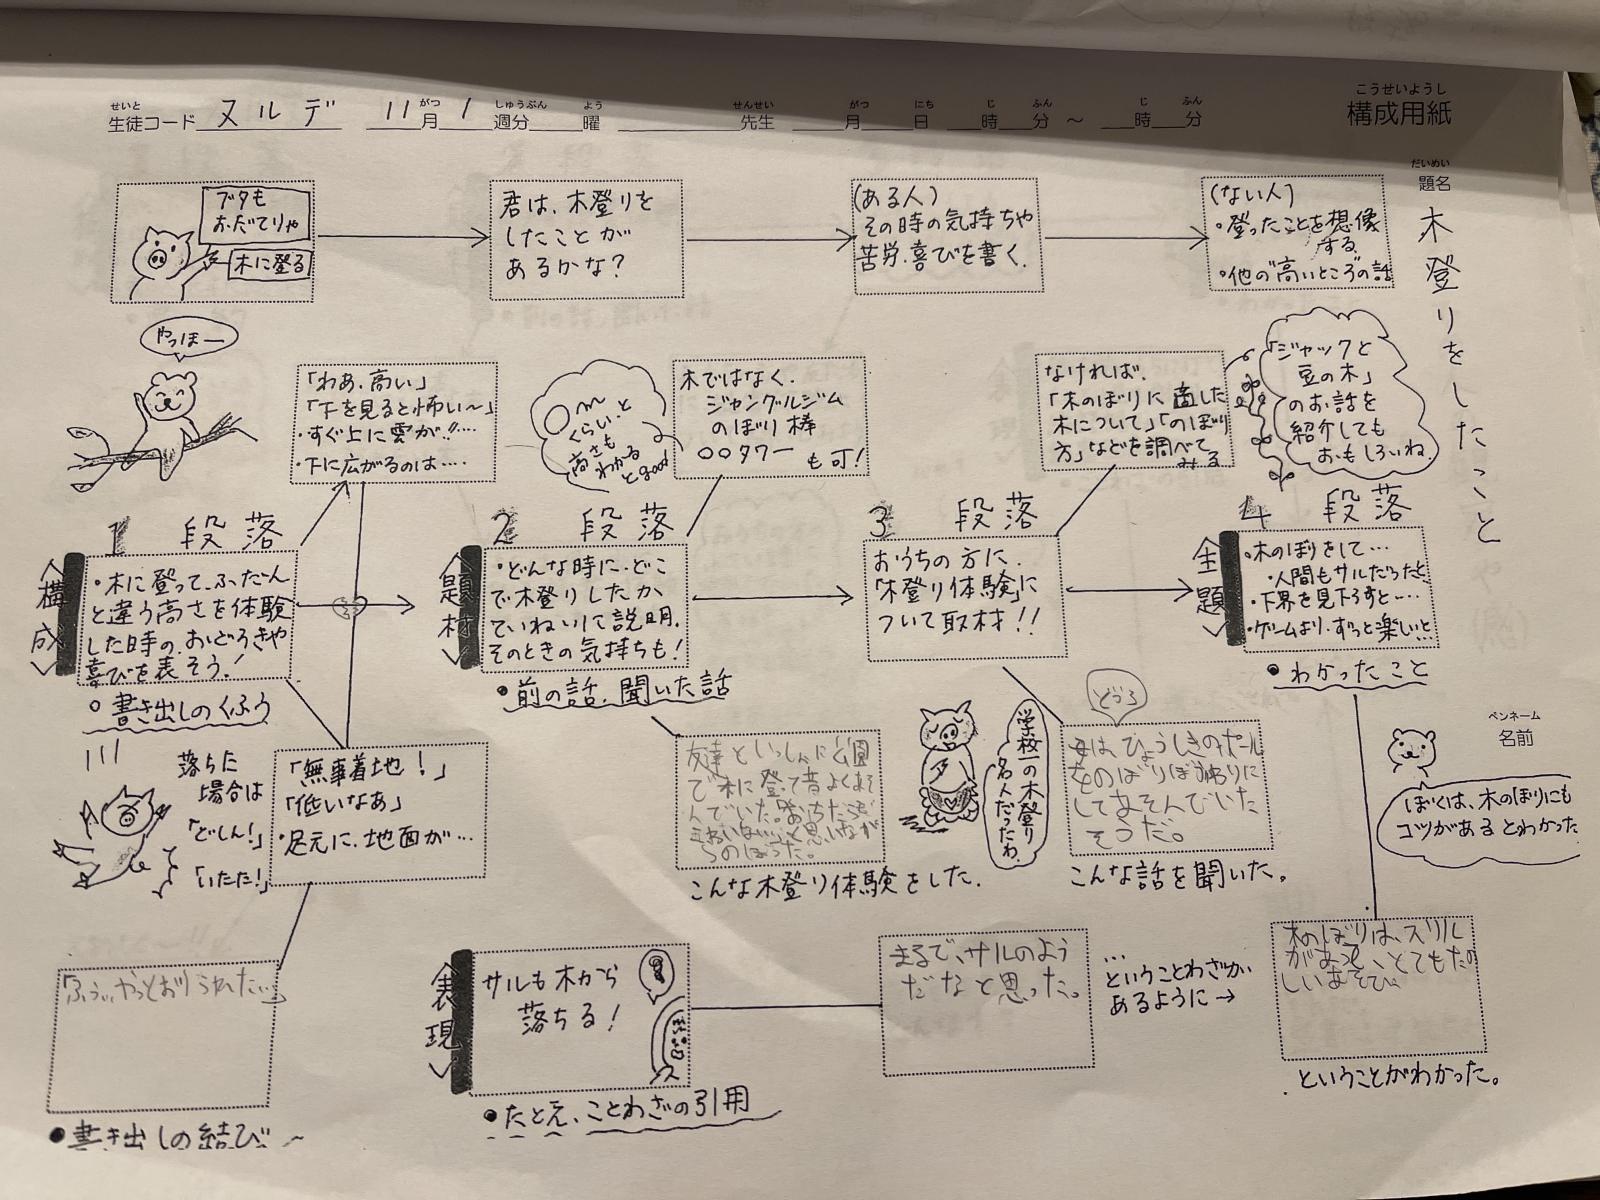 こうせいようし
構成用紙
せいと がつ しゅうぶん よう せんせい がつ にち じ ふん じ ふん
生徒コード ヌルデ 11月1週分 曜 先生 月 日 時 分 ～ 時 分
だいめい
題名
木登りをしたこと
ブタも
おだてりゃ
木に登る
君は、木登りを
したことが
あるかな?
(ある人)
その時の気持ちや
苦労、喜びを書く。
(ない人)
・登ったことを想像
する
・他の"高いところ"の話
やっほー
「わあ、高い」
「下を見ると怖い～」
・すぐ上に雲が!!…
・下に広がるのは‥‥
〇m
くらい、と
高さも
わかる
とgood
木ではなく、
ジャングルジム
のぼり棒
〇〇タワー
も可!
なければ、
「木のぼりに適した
木について」「のぼり
方」などを調べて
みる
「ジャックと
豆の木」
のお話を
紹介しても
おもしろいね。
1 段落
<構成>
・木に登って、ふだん
と違う高さを体験
した時の、おどろきや
喜びを表そう!
○書き出しのくふう
2 段落
<題材>
・どんな時に、どこ
で木登りしたか
ていねいに説明。
そのときの気持ちも!
●前の話、聞いた話
3 段落
おうちの方に、
「木登り体験」に
ついて取材!!
4 段落
<主題>
・木のぼりをして…
・人間もサルだったと
・下界を見下ろすと‥‥
・ゲームより、ずっと楽しいと…
●わかったこと
ペンネーム
名前
ぼくは、木のぼりにも
コツがあるとわかった
落ちた
場合は
「どしん!」
「いたた!」
「無事着地!」
「低いなあ」
・足元に、地面が…
友達といっしょに公園
で木に登って昔よくあそ
んでいた。
と思いながら
のぼった。
こんな木登り体験をした。
学校一の木登り
名人だったわ。
どうろ
母は、ひょうしきのポール
をのぼりぼう代わりに
してあそんでいた
そうだ。
こんな話を聞いた。
「ふぅ、やっとおりられた…」
●書き出しの結び～
<表現>
サルも木から
落ちる!
●たとえ、ことわざの引用
まるで、サルのよう
だなと思った。
…
ということわざが
あるように→
木のぼりは、スリル
があって、とてもたの
しいあそび。
ということがわかった。